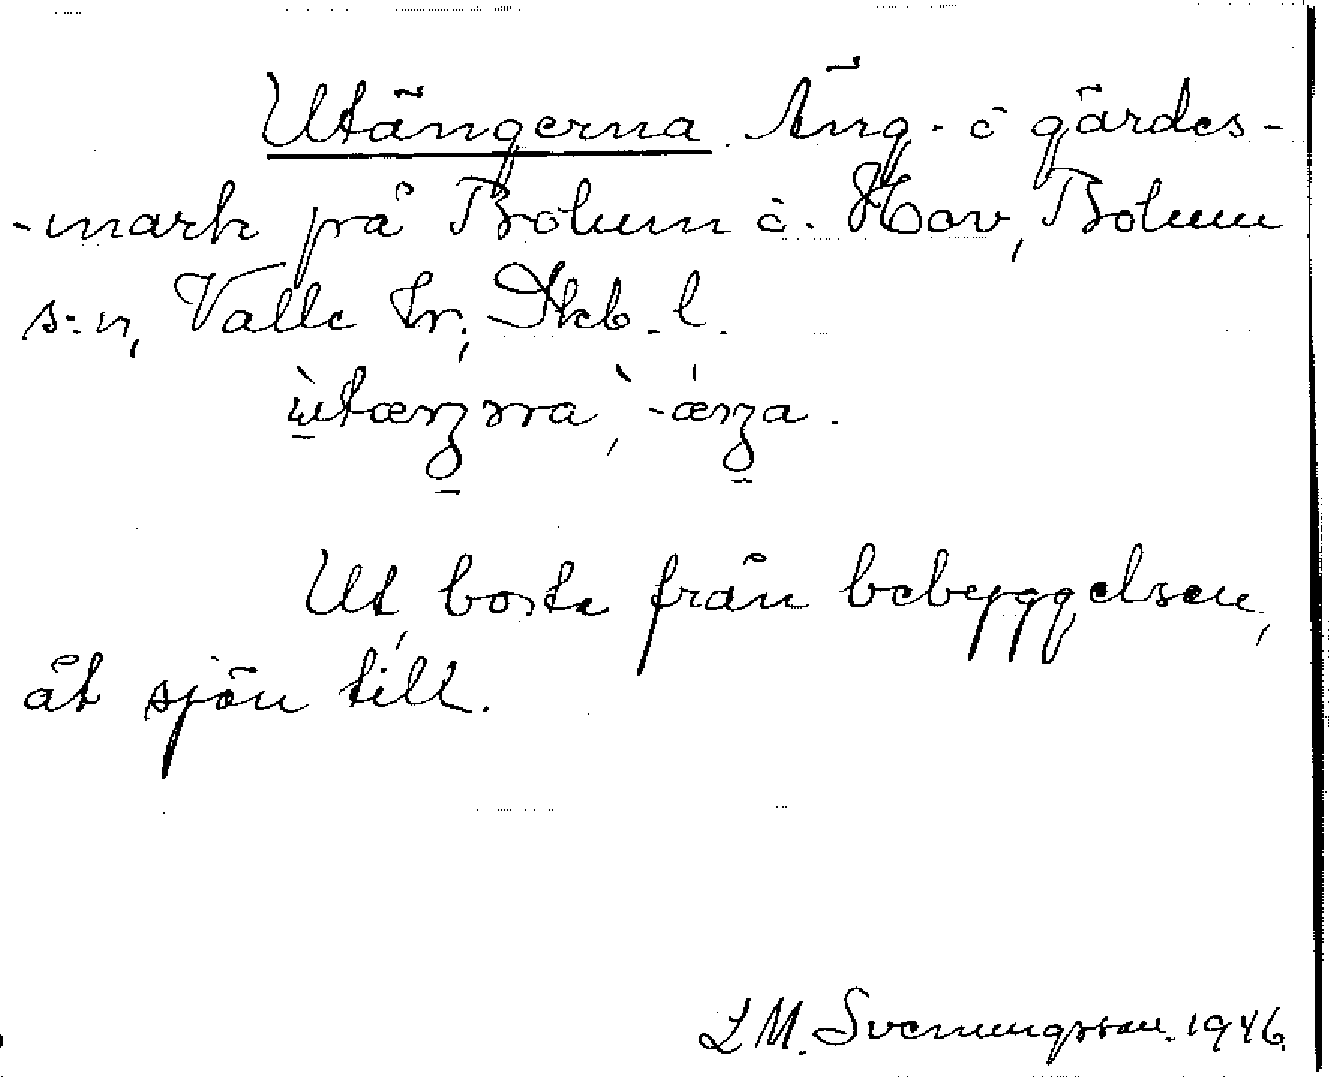 Utängerna. Äng- o gärdes-
-mark på Bolum o. Hov, Bolum
s:n, Valle hr, Skb. l.
Ut, borta från bebyggelsen,
åt sjön till.
L M. Svenungsson. 1946